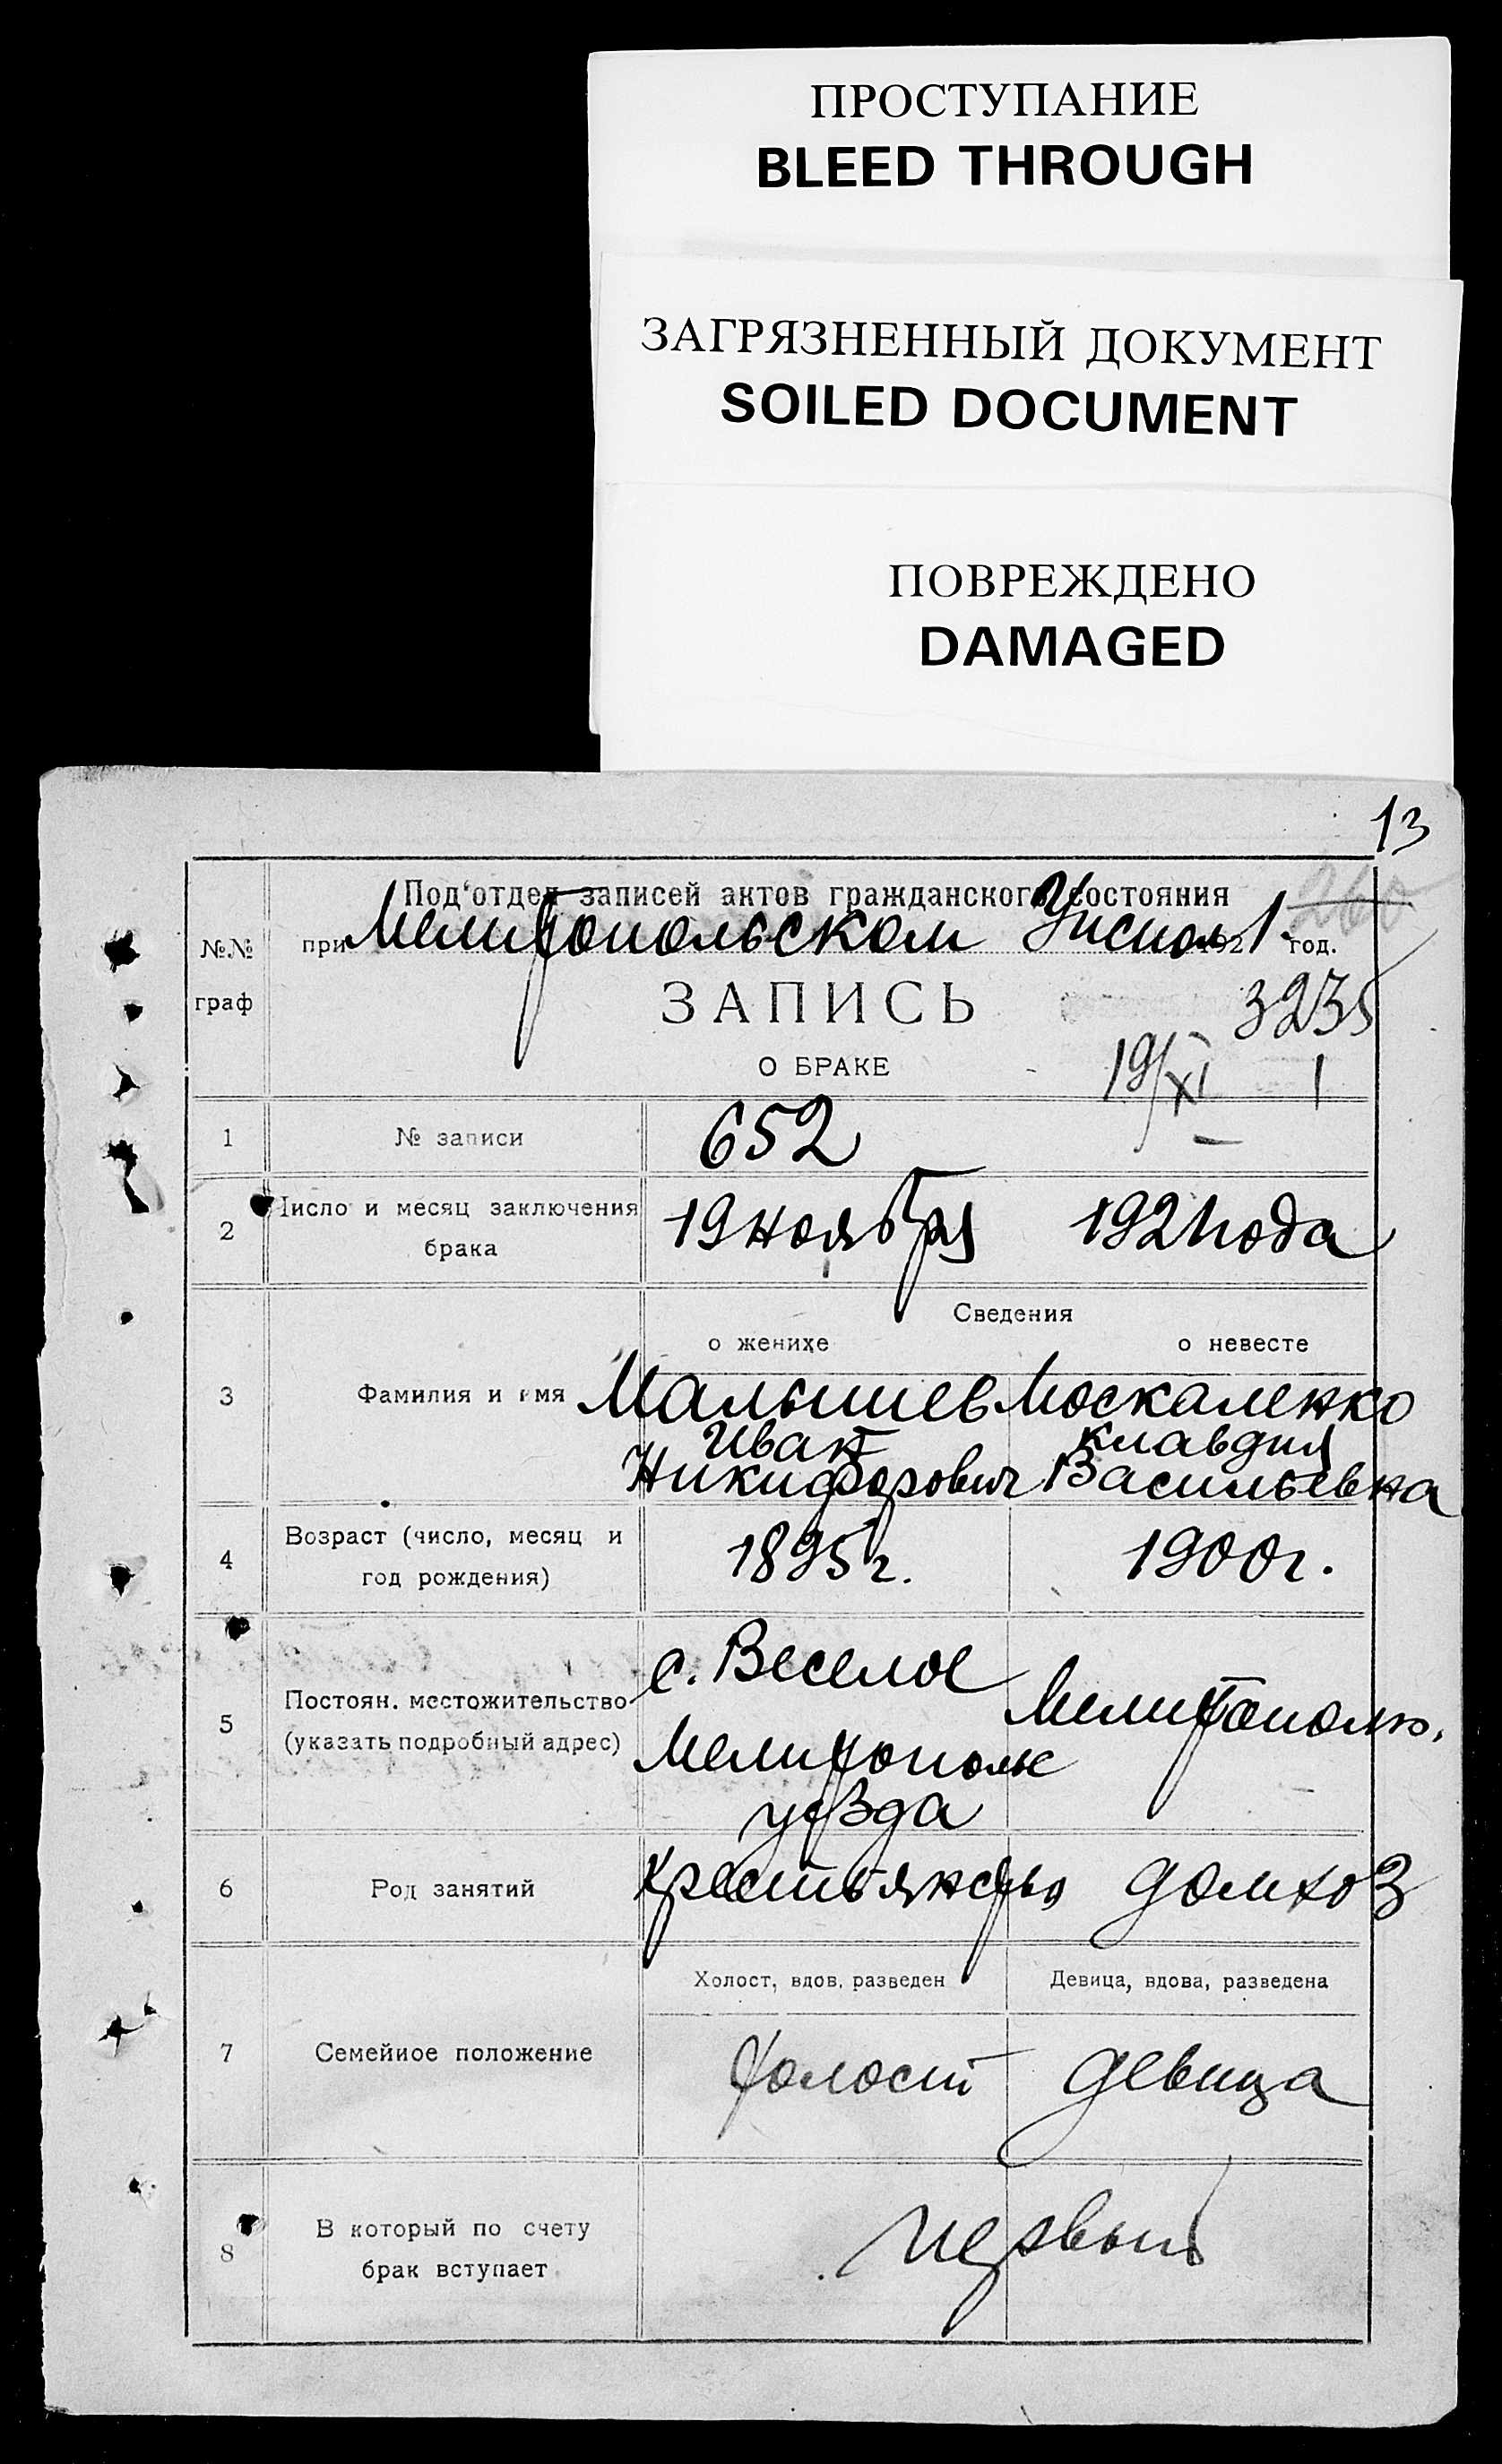 ПРОСТУПАНИЕ
BLEED THROUGH
ЗАГРЯЗНЕННЫЙ ДОКУМЕНТ
SOILED DOCUMENT
ПОВРЕЖДЕНО
DAMAGED
13
260
Под'отдел записей актов гражданского состояния
№№ граф
при Мелитопольском Уисполк 1921 год.
ЗАПИСЬ
3235
О БРАКЕ
19/XI 1
1 № записи 652
2 Число и месяц заключения брака 19 ноября 1921 года
Сведения
о женихе о невесте
3 Фамилия и имя Малышев Москаленко
Иван Клавдия
Никифорович Васильевна
4 Возраст (число, месяц и год рождения) 1895 г. 1900 г.
5 Постоян. местожительство (указать подробный адрес) с. Веселое Мелитополь.
Мелитопольск
уезда
6 Род занятий Крестьянство домхоз
Холост, вдов, разведен Девица, вдова, разведена
7 Семейное положение холост девица
8 В который по счету брак вступает первый